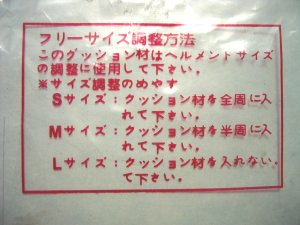 フリーサイズ調整方法
このクッション材はヘルメントサイズ
の調整に使用して下さい。
※サイズ調整のめやす
Sサイズ：クッション材を全周に入
れて下さい。
Mサイズ：クッション材を半周に入
れて下さい。
Lサイズ：クッション材を入れない
て下さい。